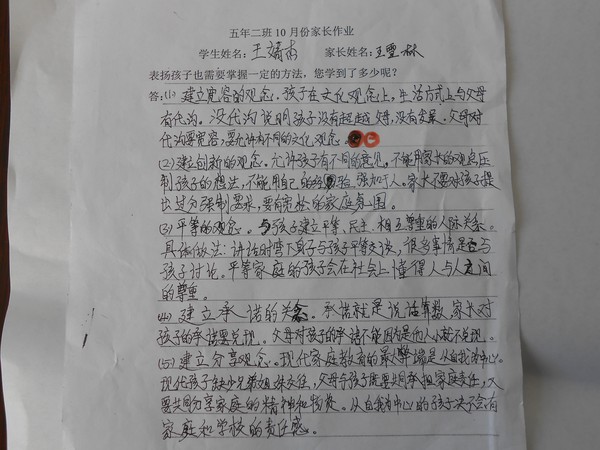 五年二班10月份家长作业
学生姓名：王婧 家长姓名：王雪林
表扬孩子也需要掌握一定的方法，您学到了多少呢？
答：(1) 建立宽容的观念。孩子在文化观念上，生活方式上与父母
有代沟。没代沟说明孩子没有超越父母，没有发展。父母对
代沟要宽容，要允许有不同的文化观念。
(2) 建创新的观念。允许孩子有不同的意见，不能用家长的观点压
制孩子的想法，不能用自己的经验强加于人。家长不要对孩子提
出过分强制要求，要有宽松的家庭氛围。
(3) 平等的观念。与孩子建立平等、民主、相互尊重的人际关系。
具体做法：讲话时弯下身子与孩子平等交谈，很多事情是否与
孩子讨论。平等家庭的孩子会在社会上懂得人与人之间
的尊重。
(4) 建立承诺的关系。承诺就是说话算数，家长对
孩子的承诺要兑现。父母对孩子的承诺不能因为是他人小就不兑现。
(5) 建立分享观念。现代家庭教育的最大弊端是从自我为中心。
现代孩子缺少兄弟姐妹交往，父母与孩子既要共同承担家庭责任，又
要共同分享家庭的精神和物资。从自我为中心的孩子决不会有
家庭和学校的责任感。